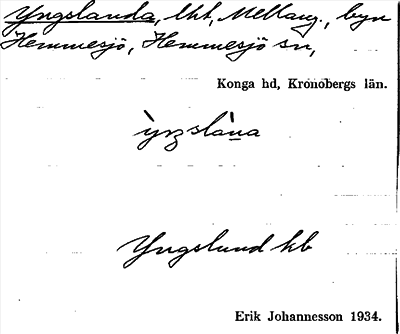 Yngslanda, lht, Mellang., byn
Hemmesjö, Hemmesjö sn,
Konga hd, Kronobergs län.
Yngslund kb
Erik Johannesson 1934.